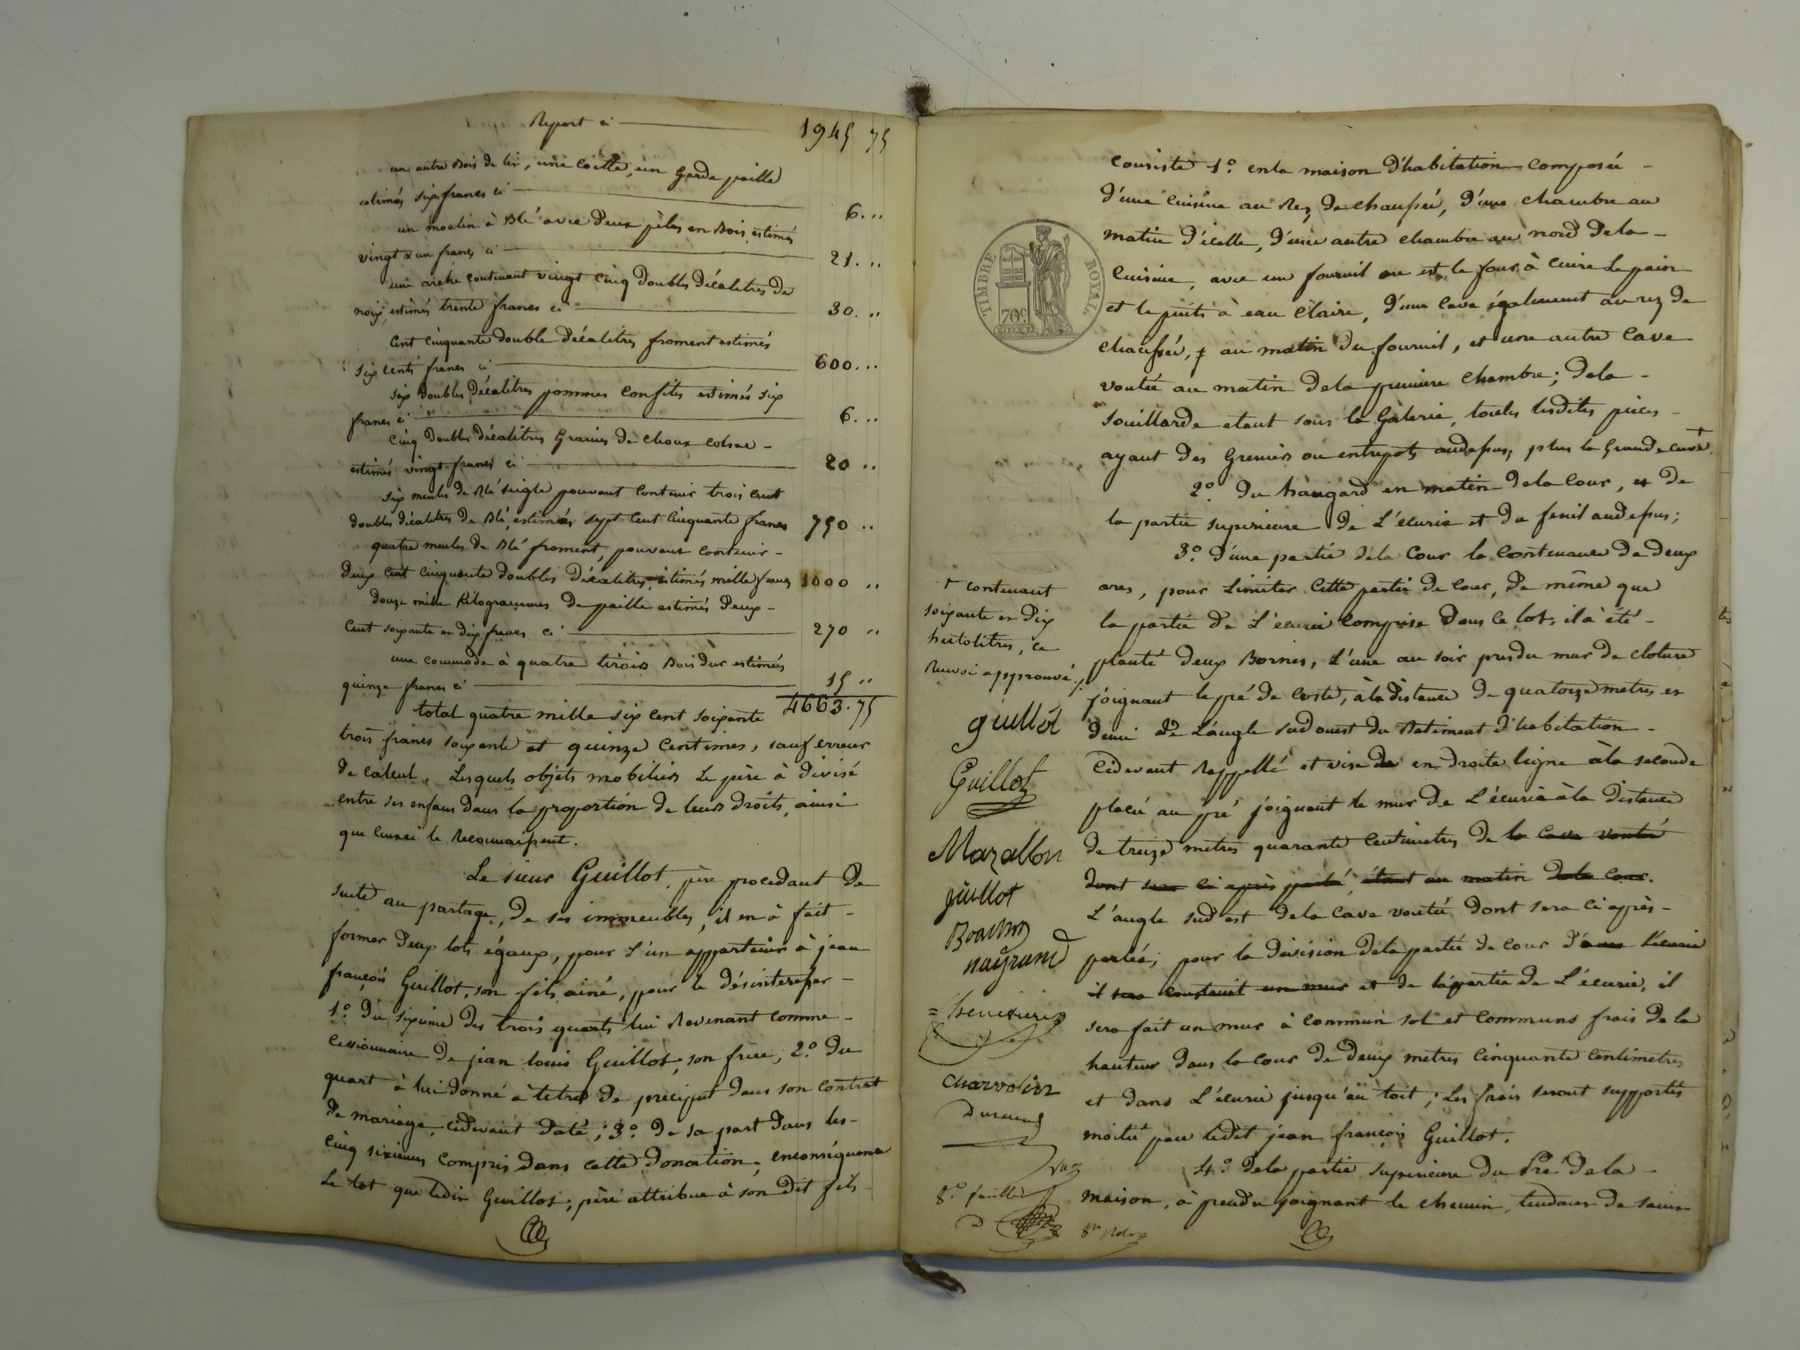 Report ci 1945 75
un autre Bois de lit, une coitte, un garde paille
estimés six francs ci 6. ..
un moulin à Blé avec deux pèles en Bois, estimés
vingt & un francs ci 21. ..
une arche contenant vingt cinq doubles Décalitres de
noix, estimés trente francs ci 30. ..
Cent cinquante double Décalitres froment estimés
six cents francs ci 600. ..
six doubles Décalitres pommes confites estimés six
francs ci 6. ..
Cinq Doubles Décalitres Graines de choux colsac -
estimés vingt francs ci 20 ..
six meules de Blé seigle pouvant contenir trois cent
doubles décalitres de Blé, estimés sept cent cinquante francs 750 ..
quatre meules de Blé froment, pouvant contenir -
deux cent cinquante doubles Décalitres, estimés mille francs 1000 ..
douze mille kilogrammes de paille estimés deux -
cent soixante en dix francs ci 270 ..
une commode à quatre tiroirs Bois dur estimés
quinze francs ci 15 ..
total quatre mille six cent soixante 4663. 75
trois francs soixente et quinze centimes, sauf erreur
de calcul. Lesquels objets mobiliers Le père à divisé
entre ses enfans dans la proportion de leurs droits, ainsi
que ceux ci le reconnaissent.
Le sieur Guillot, père procedant de
suite au partage, de ses immeubles, il en à fait -
former deux lots égaux, pour l'un appartenir à jean
françois Guillot, son fils ainé, pour le désinteresser -
1.º du sixieme des trois quarts lui Revenant comme -
cessionnaire de jean louis Guillot, son frère; 2.º du
quart à lui donné à tetre de préciput dans son contrat
de mariage, cidevant daté; 3.º de sa part dans les -
cinq sixiemes compris dans cette donation; enconséquence
Le lot que ledit Guillot, père attribue à son dit fils -
consiste 1.º en la maison d'habitation composée -
d'une cuisine au Rez de chaussée, d'une chambre au
matin d'icelle, d'une autre chambre au nord dela -
cuisine, avec un fournil ou est le four à cuire le pain
et le puits à eau claire, d'une cave également au rez de
chaussée, au matin du fournil, et une autre cave
voutée au matin dela premiere chambre; dela -
souillarde etant sous la Galerie, toutes lesdites pièces -
ayant des Greniers ou entrepots audessus, plus la Grande cuve +
2.º du hangard en matin dela cour, et de
la partie superieure de L'écurie et du fenil audessus;
3.º d'une partie dela Cour la contenance de deux
ares, pour Limiter cette partie de cour, de même que
la partie de L'écurie comprise dans ce lot, il à été -
planté deux Bornes, L'une au soir près du mur de cloture
joignant le pré de coste, à la distance de quatorze metres et
demi de L'angle sud ouest du Batiment d'habitation -
cidevant Rappellé et vise de en droite ligne àla seconde
placée au pré joignant le mur de L'écurie àla distance
de treize metres quarante centimetres de la cave voutée
dont sera ci après parlé, étant au matin dela cour.
L'angle sud est dela cave voutée dont sera ci après -
parlée; pour la division dela partie de cour d'avec l'écurie
il sera construit un mur et de lapartie de L'écurie, il
sera fait un mur à commun sol et communs frais de la
hauteur dans la cour de deux metres cinquante centimetres
et dans L'écurie jusqu'au toit; Les frais seront supportés
moitié par ledit jean françois Guillot.
4.º dela partie superieure du Pré de la -
maison, à prendre joignant le chemin, tendant de
TIMBRE ROYAL
70c
+ contenant
soixante en dix
hectolitres, ce
Renvoi approuvé ./.
guillot
Guillot
Mazallon
guillot
charvolin
Durand
8.e feuillet